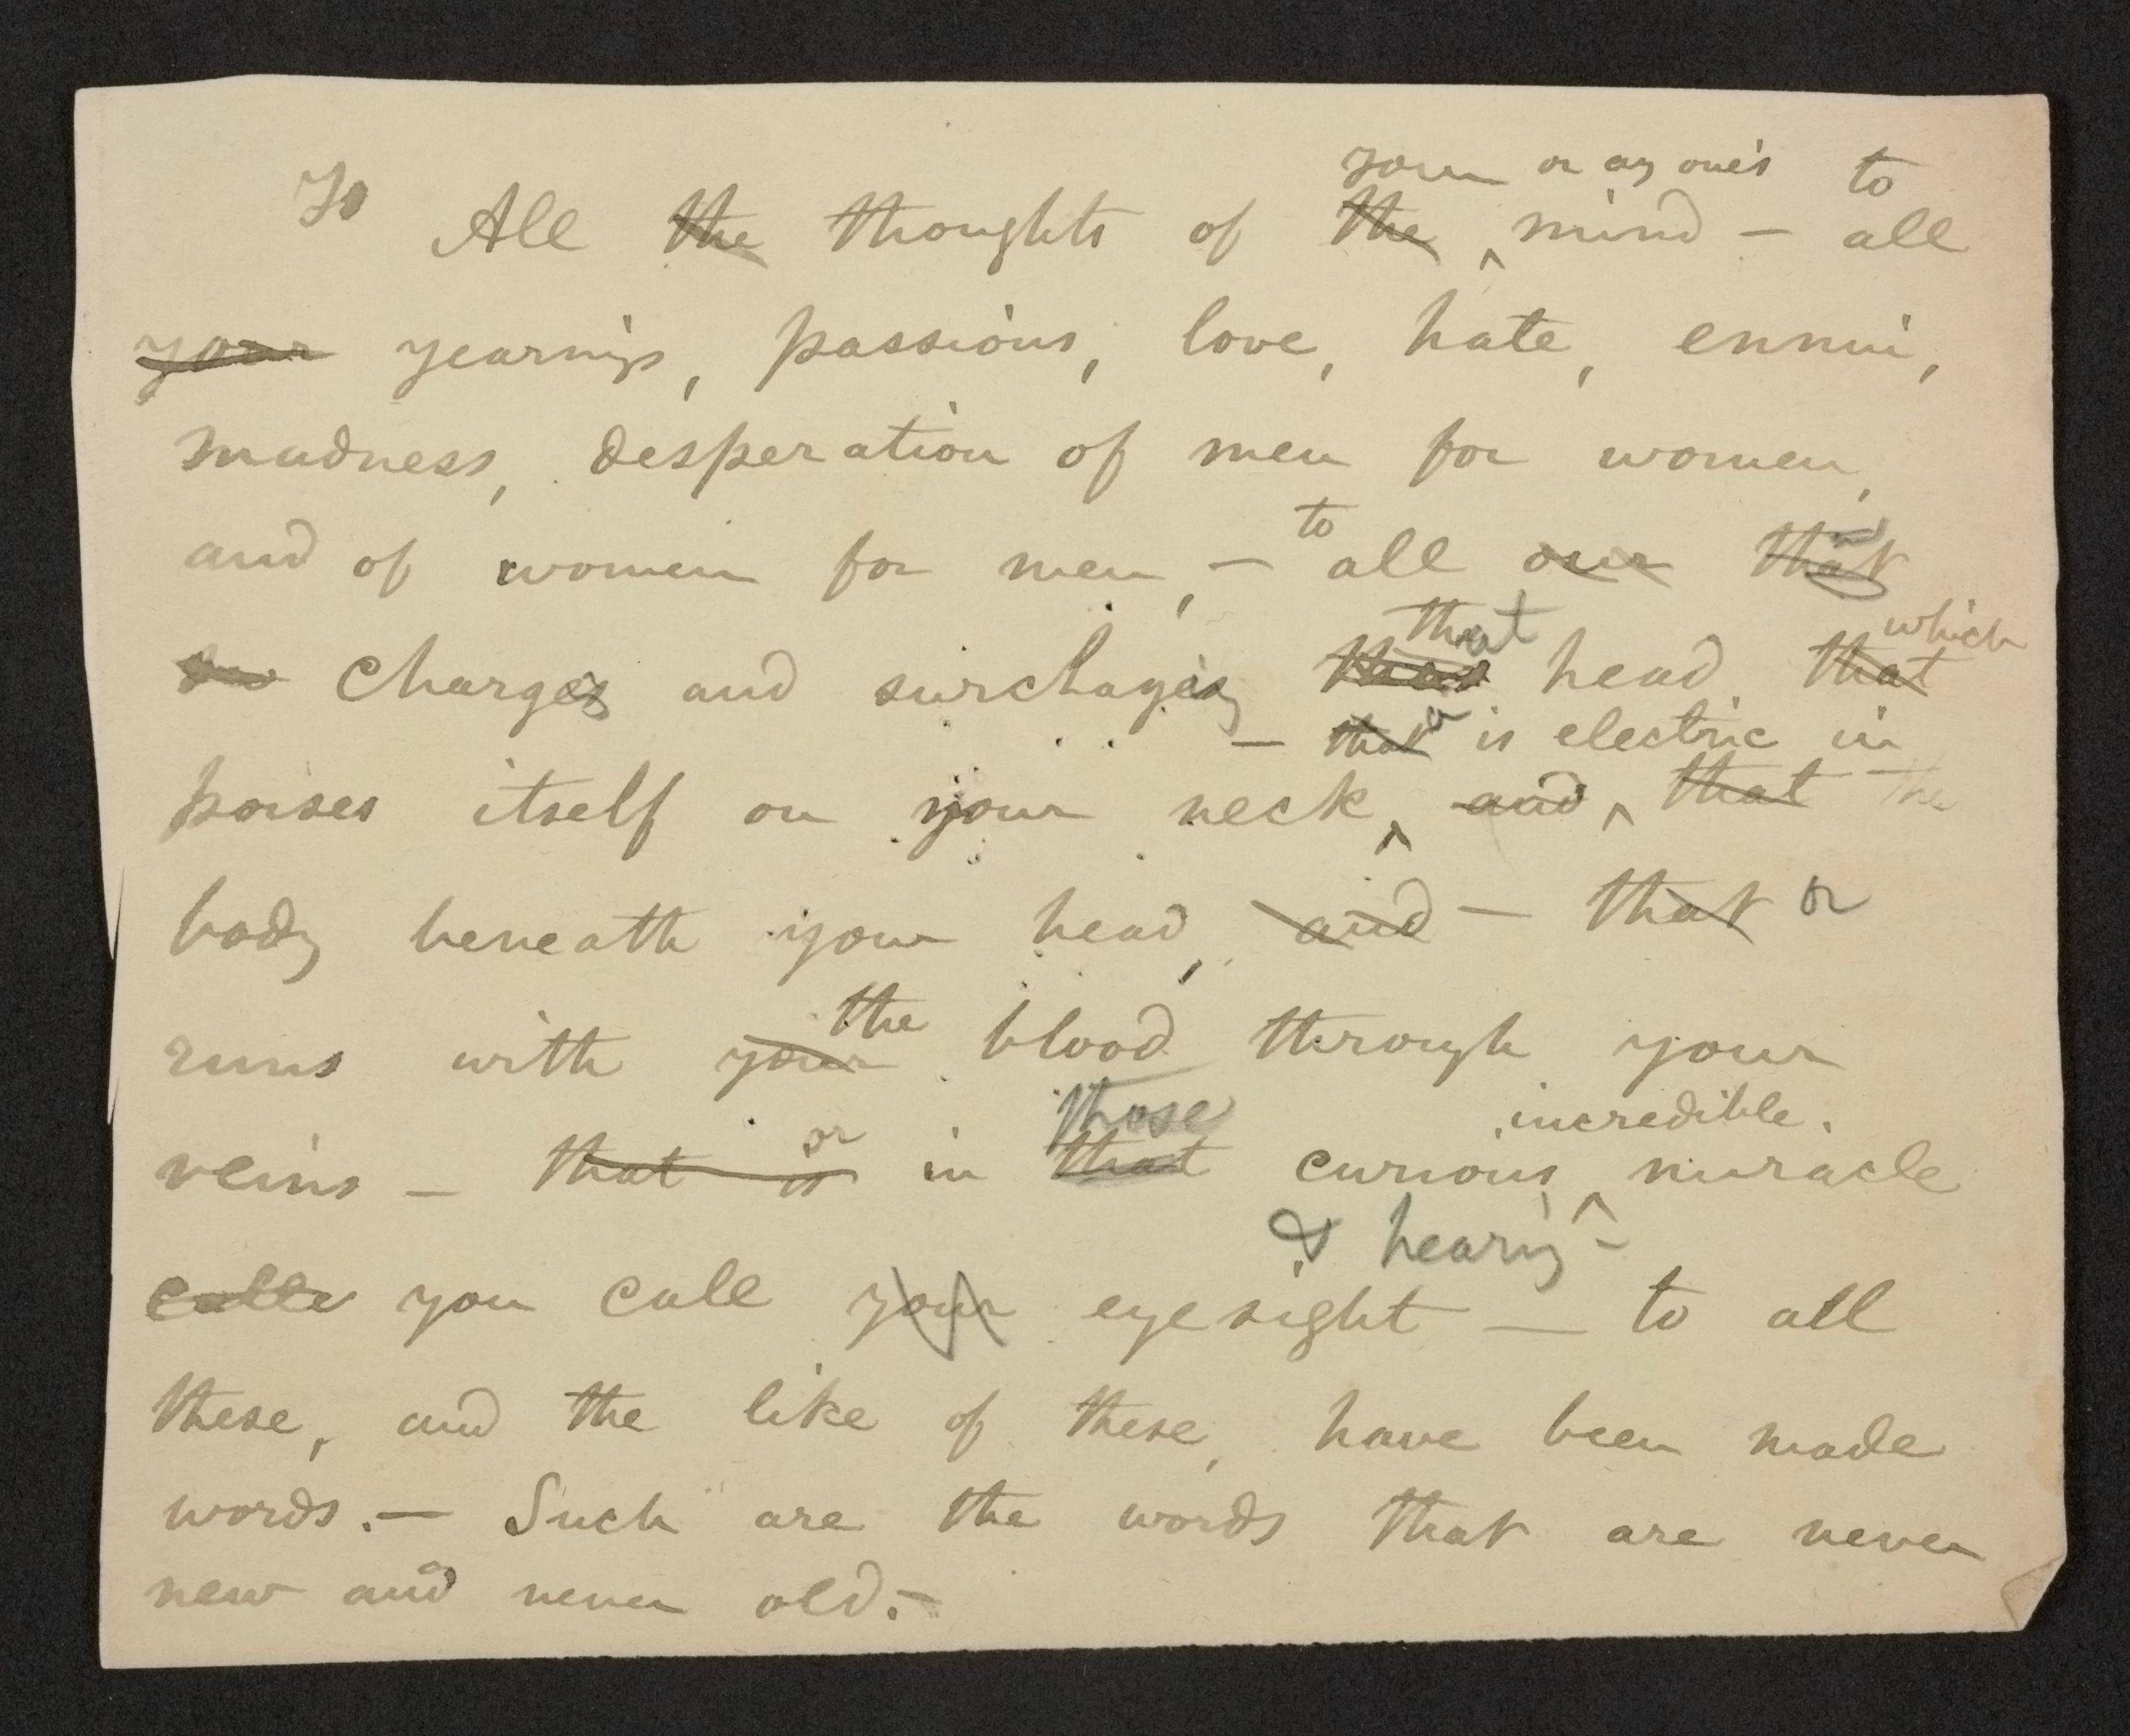 your or any one's to
To All the thoughts of the ^ mind — all
your yearnings, passions, love, hate, ennui,
madness, desperation of men for women,
and of women for men, — to all our that
charges and surcharging that head that which
— that or is electric in
poises itself on your neck, ^ and ^ that the
body beneath your head, and — that or
runs with your the blood through your
those incredible.
veins — that is or in that curious, ^ miracle
& hearing —
calls you call your eyesight — to all
these, and the like of these, have been made
words. — Such are the words that are never
new and never old. —